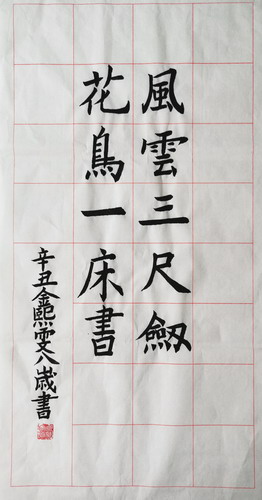 風雲三尺劔
花鳥一床書
辛丑金熙雯八歲書